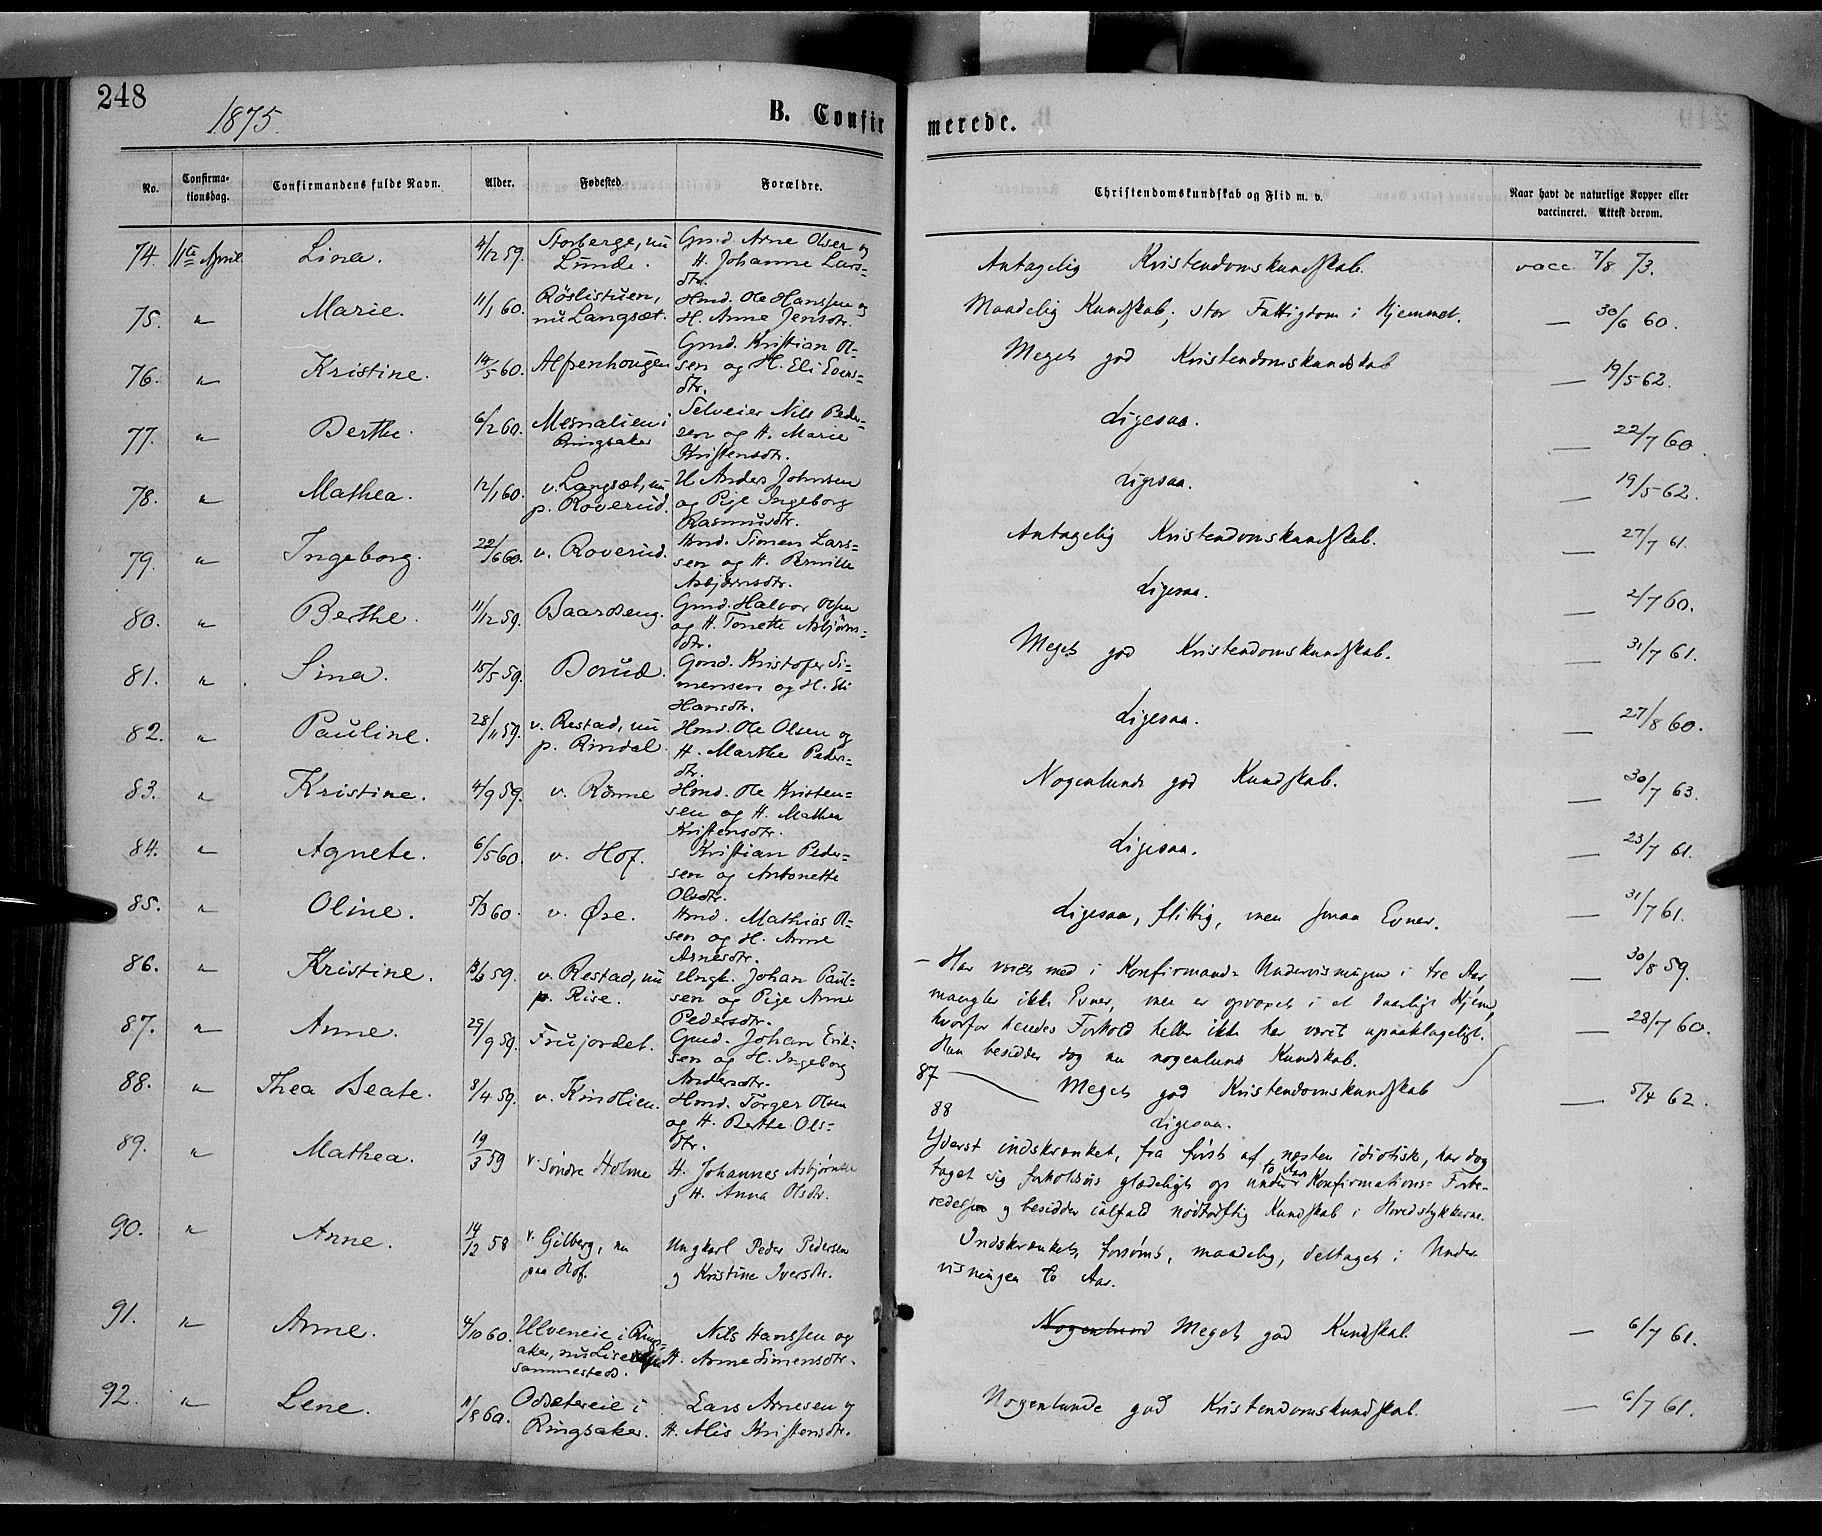 248
1875.
B. Confir
merede.
No.
Confirma-
tionsdag.
Confirmandens fulde Navn.
Alder.
Fødested.
Forældre.
Christendomskundskab og Flid m. v.
Naar havt de naturlige Kopper eller
vaccineret. Attest derom.
74. 11te April Lina. 4/12 59. Storberge, nu
Lunde.
Gmd. Arne Olsen og
H. Johanne Lars-
dtr.
Antagelig Kristendomskundskab.
vacc. 7/8 73.
75. " Marie. 11/1 60. Röslistuen,
nu Langsæt.
Hmd. Ole Hanssen og
H. Anne Jensdtr.
Maadelig Kundskab, stor Fattigdom i Hjemmet.
— 30/6 60.
76. " Kristine. 14/5 60. Alfenhougen
Gmd. Kristian Ol-
sen og H. Eli Evens-
dtr.
Meget god Kristendomskundskab
— 19/5 62.
77. " Berthe. 6/2 60. Mesnalien i
Ringsaker
Selveier Nils Peder-
sen og H. Marie
Kristensdtr.
Ligesaa.
— 22/7 60.
78. " Mathea. 12/1 60. v. Langsæt, nu
p. Roverud.
U. Anders Johnsen
og Pige Ingeborg
Rasmusdtr.
Ligesaa.
— 19/5 62.
79. " Ingeborg. 22/6 60. v. Roverud.
Hmd. Simen Lars-
sen og H. Pernille
Asbjørnsdtr.
Antagelig Kristendomskundskab.
— 27/7 61.
80. " Berthe. 11/12 59. Baardseng.
Gmd. Halvor Olsen
og H. Tonette Asbjørns-
dtr.
Ligesaa.
— 2/7 60.
81. " Sina. 15/5 59. Dorud.
Gmd. Kristofer Si-
mensen og H. Eli
Hansdtr.
Meget god Kristendomskundskab.
— 31/7 61.
82. " Pauline. 28/11 59. v. Restad, nu
p. Rindal.
Hmd. Ole Olsen og
H. Marthe Peders-
dtr.
Ligesaa.
— 27/8 60.
83. " Kristine. 4/9 59. v. Rönne
Hmd. Ole Kristen-
sen og H. Mathea
Kristensdtr.
Nogenlunde god Kundskab.
— 30/7 63.
84. " Agnete. 6/5 60. v. Hof.
Kristian Peder-
sen og Antonette
Olsdtr.
Ligesaa.
— 23/7 61.
85. " Oline. 5/3 60. v. Øre.
Hmd. Mathias Ol-
sen og H. Anne
Arnesdtr.
Ligesaa, flittig, men smaa Evner.
— 31/7 61.
86. " Kristine. 59. v. Restad, nu
p. Rise.
Ungk. Johan Paul-
sen og Pige Anne
Pedersdtr.
— Har været med i Konfirmand-Undervisningen i tre Aar,
mangler ikke Evner, men er opvoxet i et daarligt Hjem,
hvorfor hendes Forhold heller ikke har været upaaklageligt.
Hun besidder dog nu nogenlunde Kundskab.
— 30/8 59.
87. " Anne. 29/9 59. Frujordet.
Gmd. Johan Erik-
sen og H. Ingeborg
Andersdtr.
87 — Meget god Kristendomskundskab
— 28/7 60.
88. " Thea Beate. 8/4 59. v. Kindlien.
Hmd. Torger Olsen
og H. Berthe Ols-
dtr.
88
Ligesaa.
— 5/4 62.
89. " Mathea. 19/3 59 v. Søndre Holme
H. Johannes Asbjørnsen
og H. Anna Olsdtr.
Yderst indskrænket, fra først af næsten idiotisk, har dog
taget sig forholdsvis glædeligt op under to Aars Konfirmations-Forbe-
redelse og besidder ialfald nødtørftig Kundskab i Hovedstykkerne.
90. " Anne. 14/12 58 v. Gilberg, nu
paa Hof.
Ungkarl Peder Pedersen
og Kristine Iversdtr.
Indskrænket, forsømt, maadelig, deltaget i Under-
visningen to Aar.
91. " Anne. 4/10 60. Ulveneie i Ring-
aker, nu
sammesteds.
Nils Hanssen og
H. Anne Simensdtr.
Nogenlund Meget god Kundskab.
— 6/7 61.
92. " Lene. 11/8 60. Oddetereie i
Ringsaker.
Lars Arnesen og
H. Alis Kristensdtr.
Nogenlunde god Kristendomskundskab.
— 6/7 61.